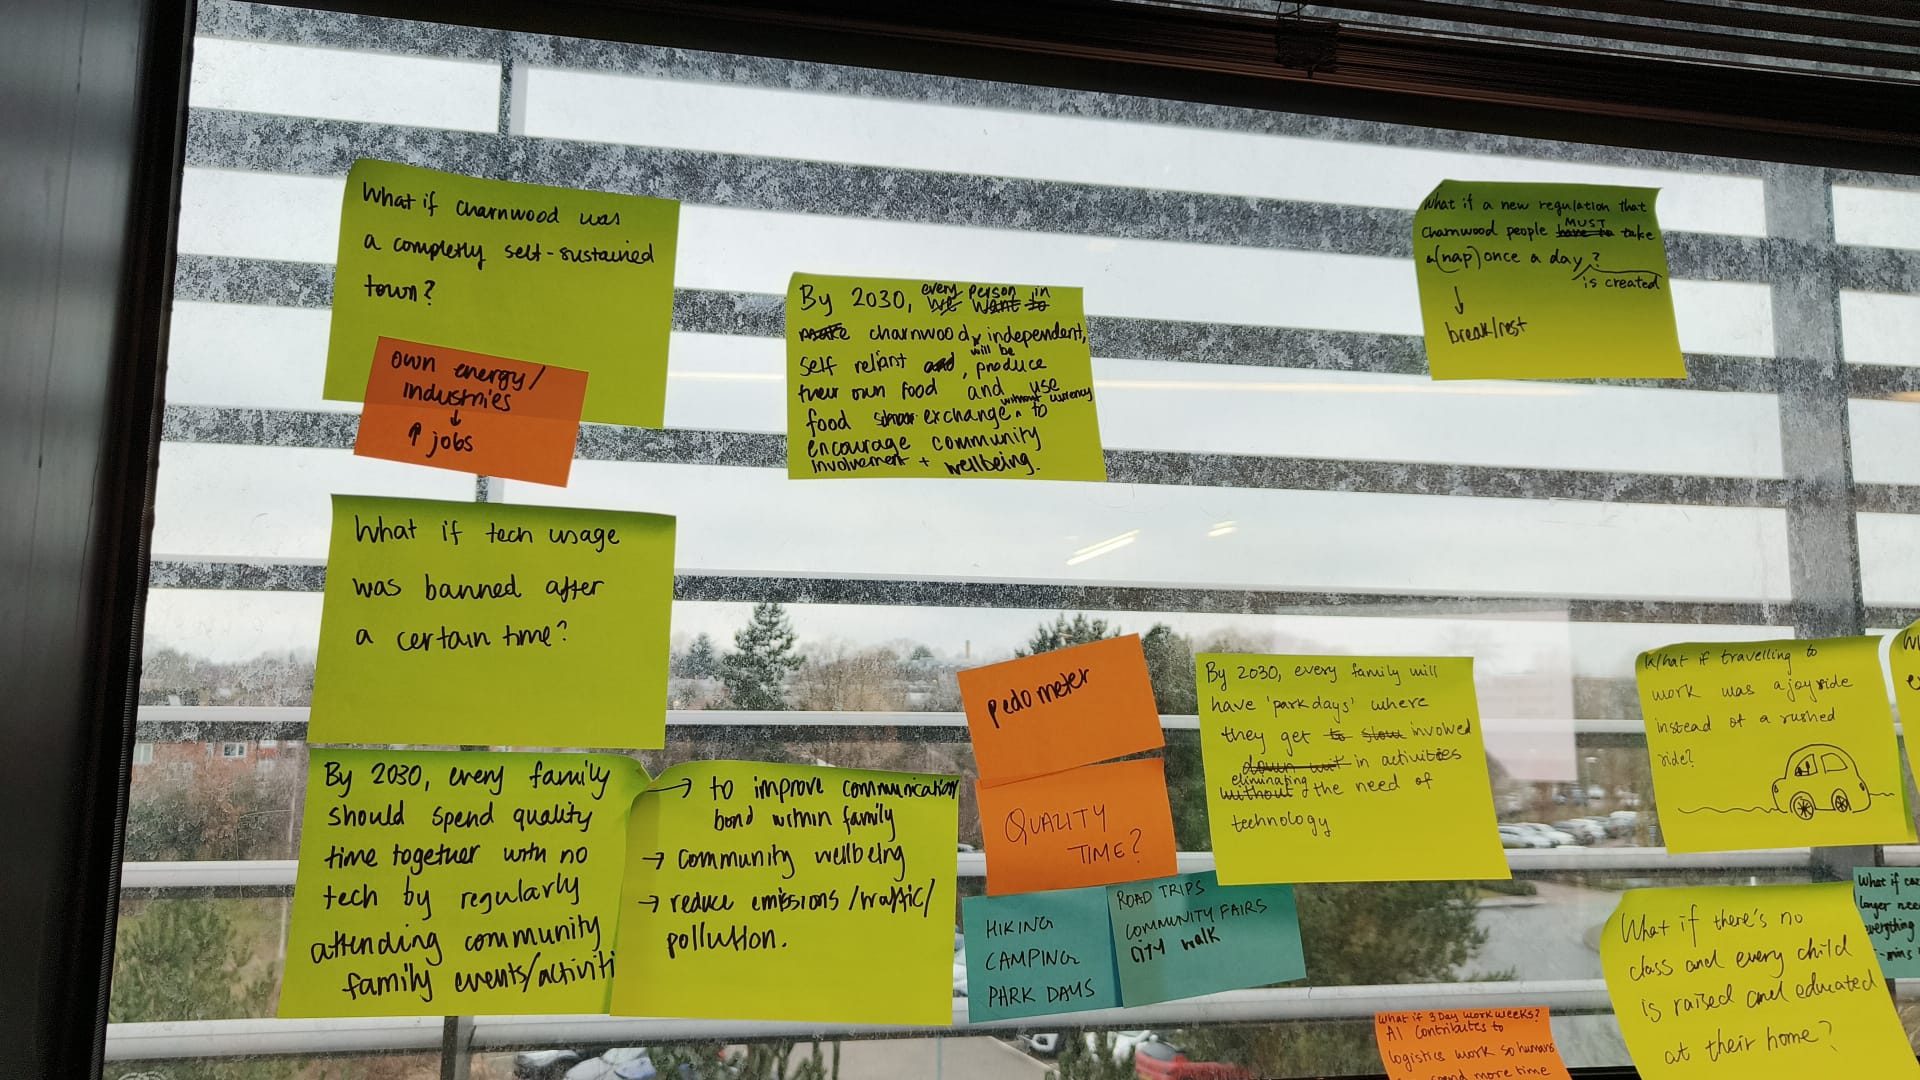 What if charnwood was
a completly self-sustained
town?
own energy/
industries
↓
↑ jobs
By 2030, every person in
we want to
make charnwood, independent,
will be
self reliant and, produce
their own food and use
without currency
food exchange to
encourage community
involvement + wellbeing.
What if a new regulation that
MUST
Charnwood people have to take
a (nap) once a day?
is created
↓
break/rest
What if tech usage
was banned after
a certain time?
By 2030, every family
should spend quality
time together with no
tech by regularly
attending community
family events/activiti
→ to improve communication
bond within family
→ community wellbeing
→ reduce emissions/traffic/
pollution.
pedometer
QUALITY
TIME?
HIKING
CAMPING
PARK DAYS
ROAD TRIPS
COMMUNITY FAIRS
City walk
By 2030, every family will
have 'park days' where
they get to slow involved
down wit in activities
eliminating
without the need of
technology
What if travelling to
work was a joyride
instead of a rushed
ride?
What if there's no
class and every child
is raised and educated
at their home?
What if
longer
everything
-mins
What if 3 Day work weeks?
AI contributes to
logistics work so humans
spend more time